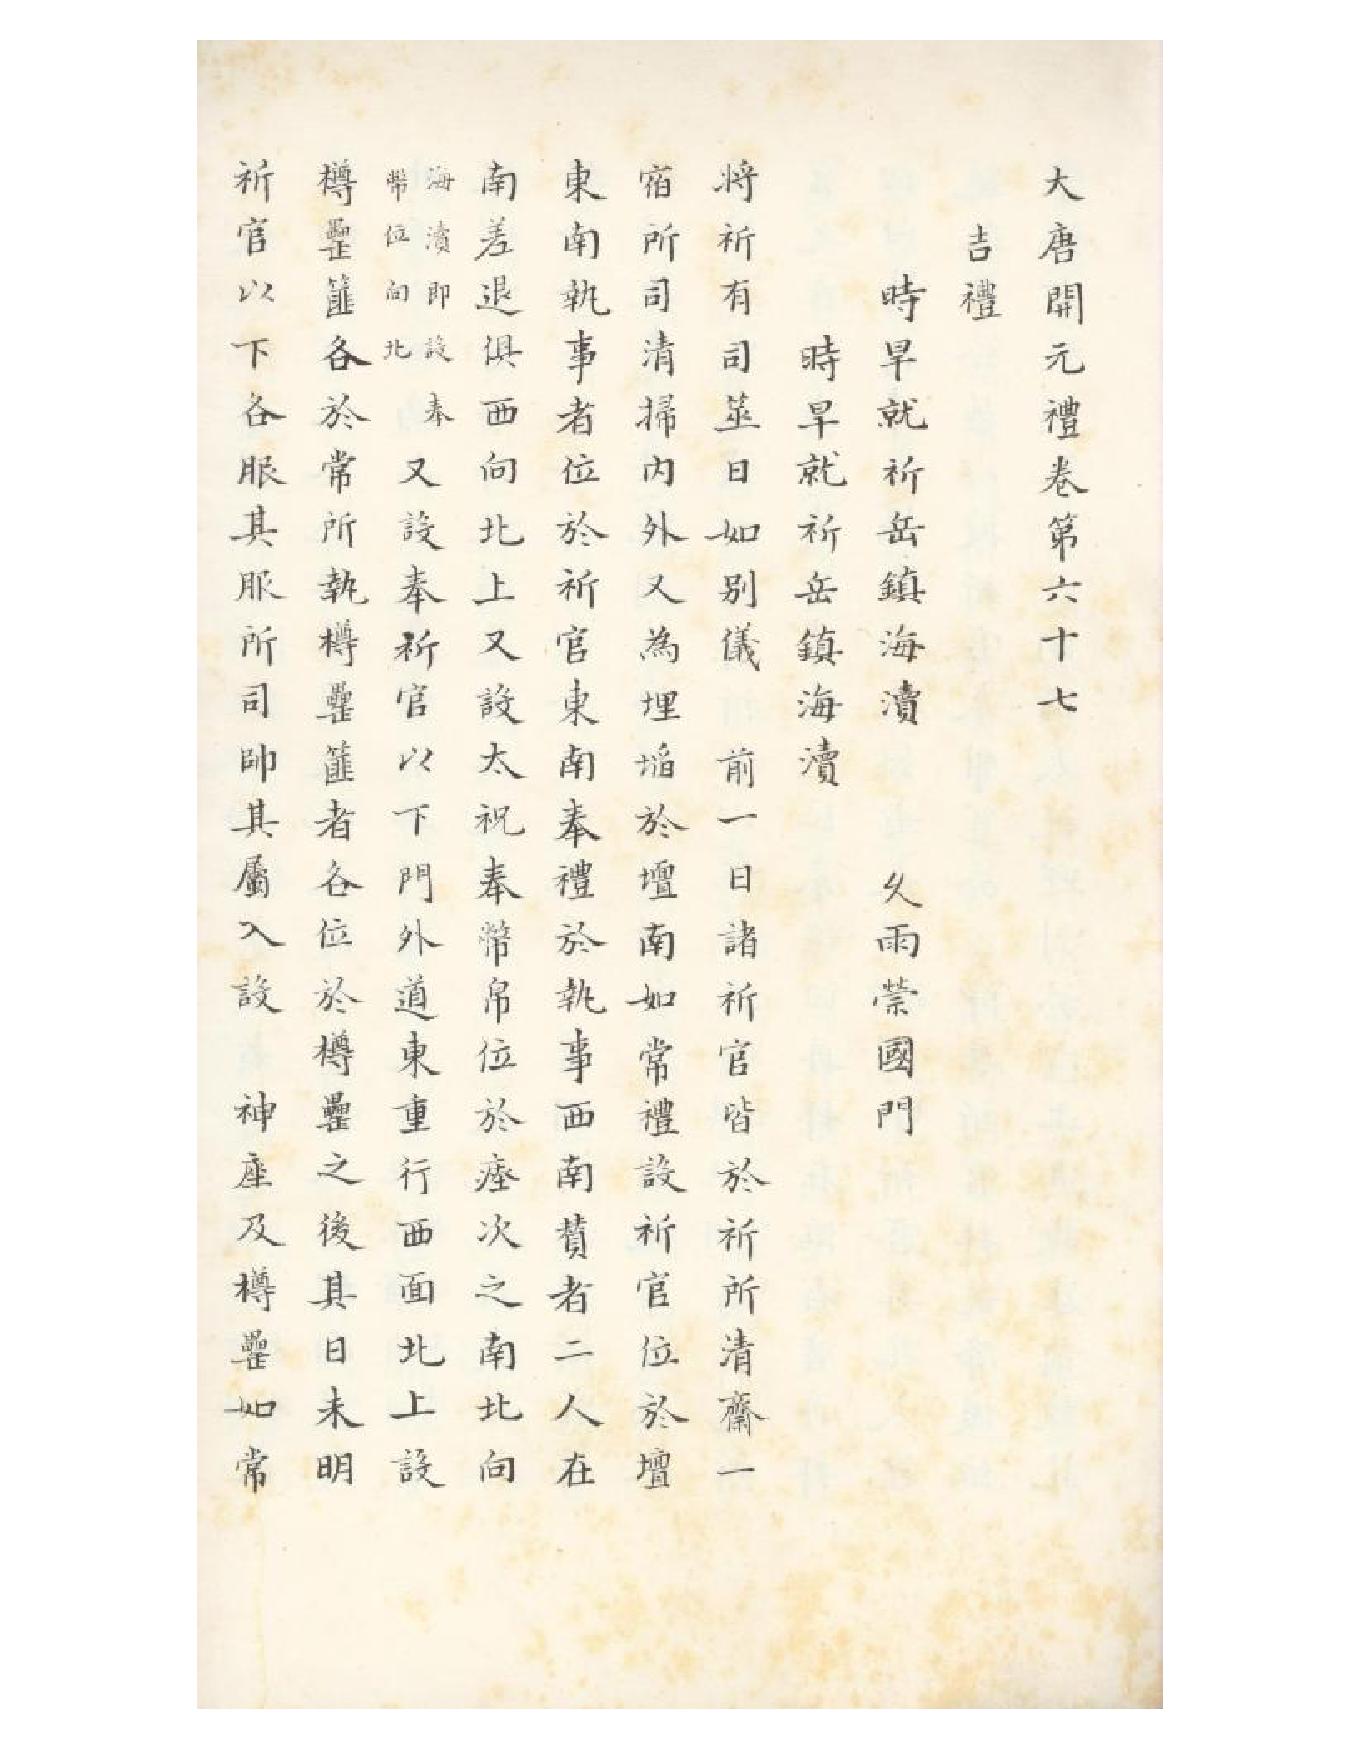 大唐開元禮卷第六十七
吉禮
時旱就祈岳鎮海瀆　久雨禜國門
時旱就祈岳鎮海瀆
將祈有司筮日如別儀　前一日諸祈官皆於祈所清齋一
宿所司清掃內外又為埋埳於壇南如常禮設祈官位於壇
東南執事者位於祈官東南奉禮於執事西南贊者二人在
南差退俱西向北上又設太祝奉幣帛位於瘞次之南北向
海瀆即設奉
幣位向北
又設奉祈官以下門外道東重行西面北上設
樽罍篚各於常所執樽罍篚者各位於樽罍之後其日未明
祈官以下各服其服所司帥其屬入設　神座及樽罍如常